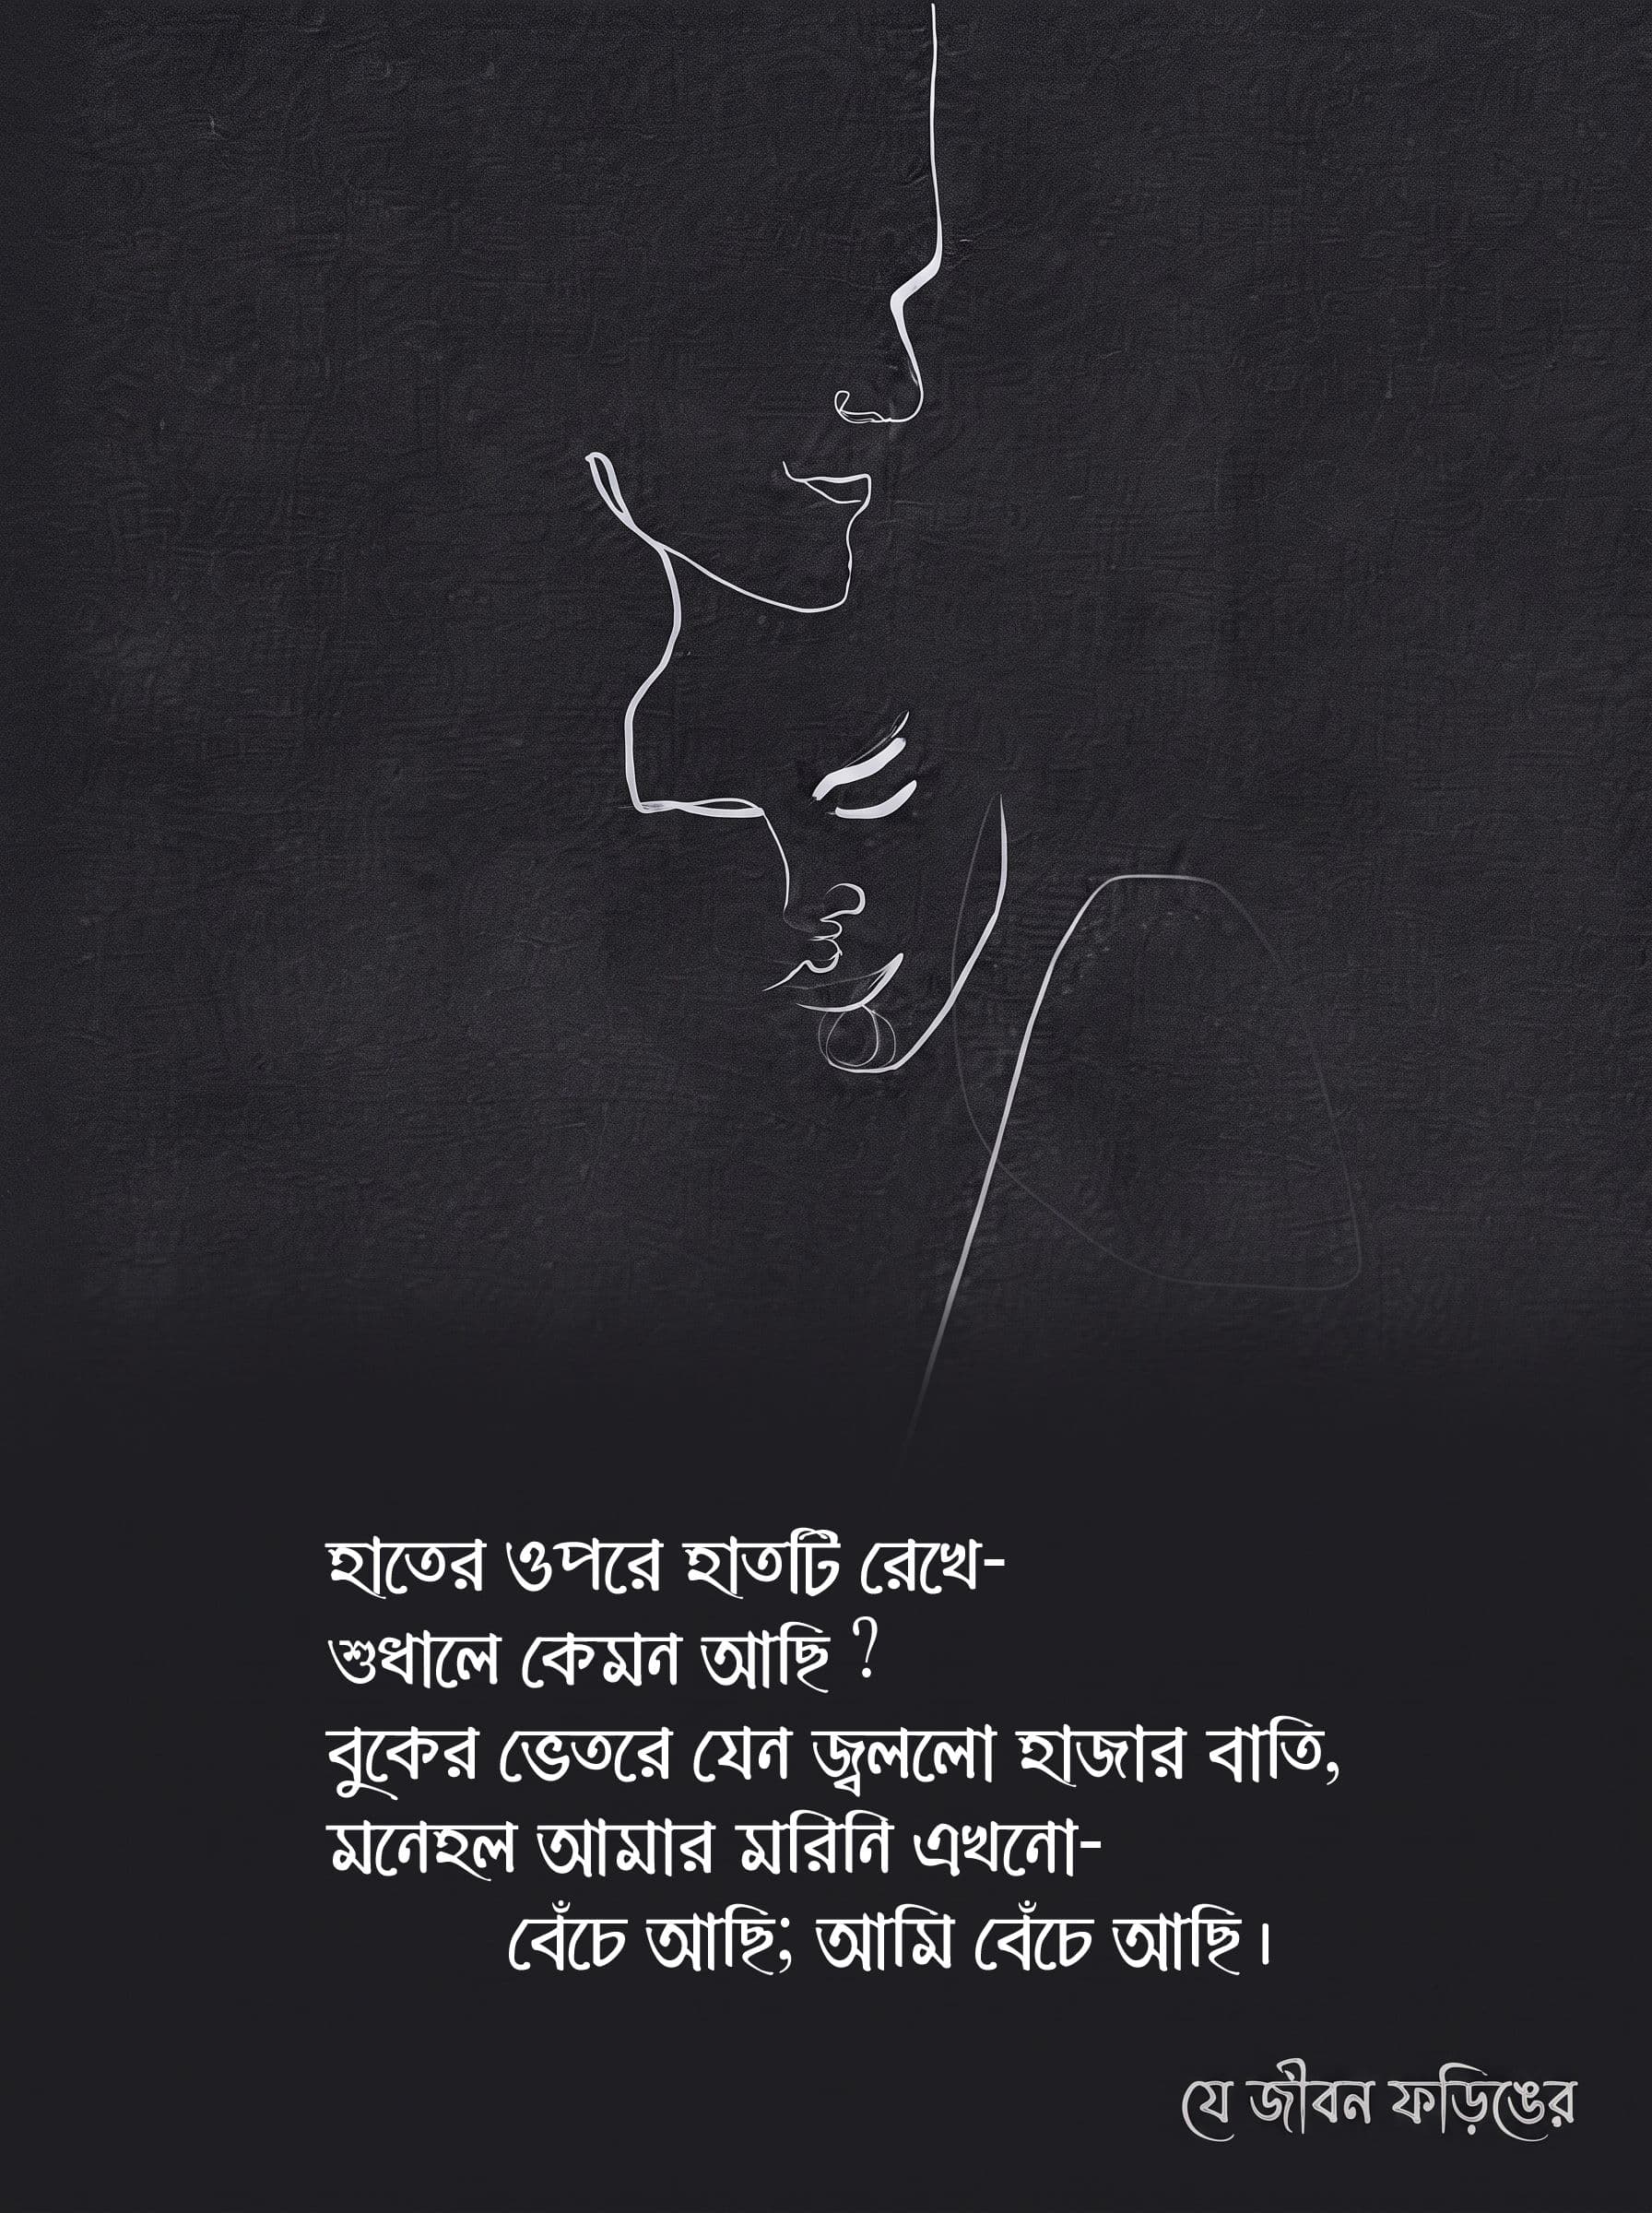 হাতের ওপরে হাতটি রেখে-
শুধালে কেমন আছি ?
বুকের ভেতরে যেন জ্বললো হাজার বাতি,
মনেহল আমার মরিনি এখনো-
বেঁচে আছি; আমি বেঁচে আছি।
যে জীবন ফড়িঙের